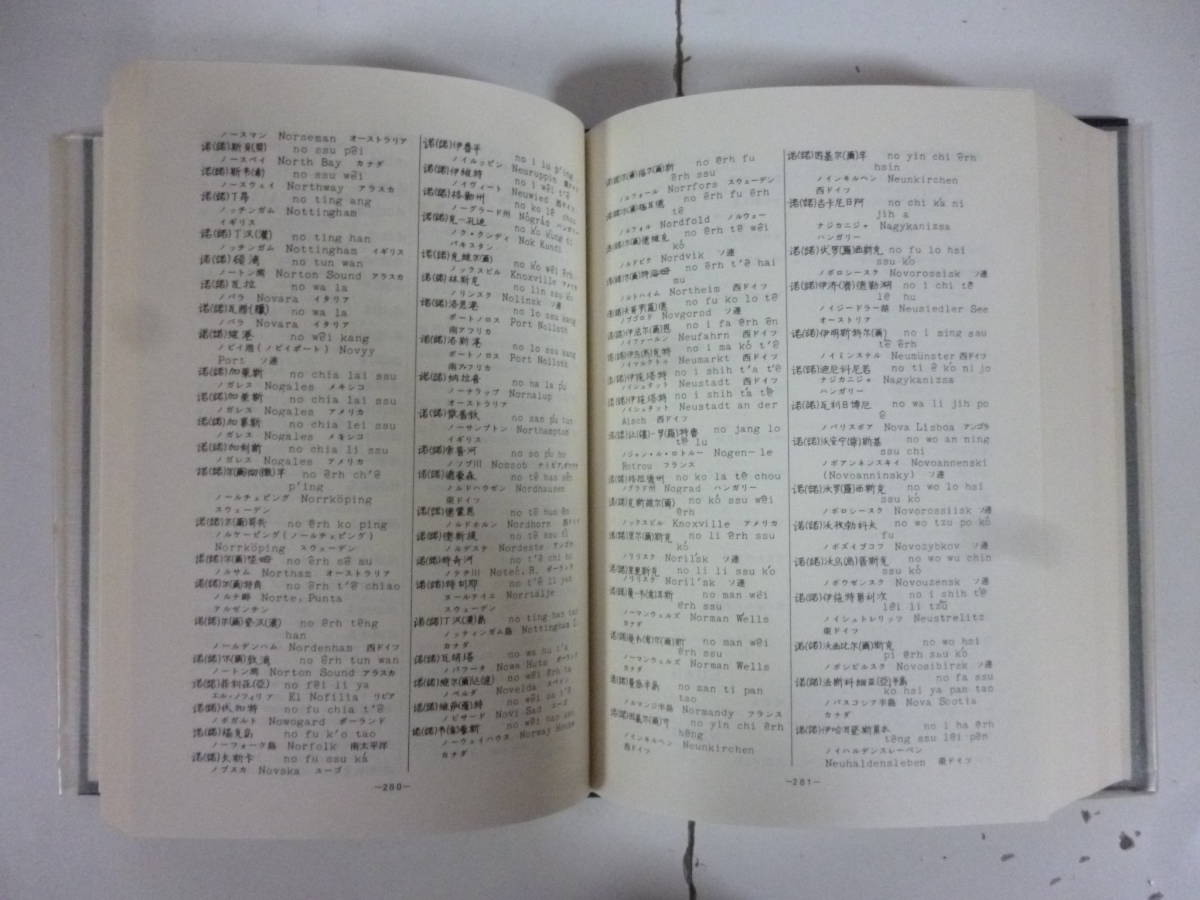 ノースマン Norseman オーストラリア
诺(諾)斯貝(貝) no ssu pêi
ノースベイ North Bay カナダ
诺(諾)斯韦(衛) no ssu wêi
ノースウェイ Northway アラスカ
诺(諾)丁昂 no ting ang
ノッチンガム Nottingham
イギリス
诺(諾)丁汉(漢) no ting han
ノッチンガム Nottingham イギリス
诺(諾) no tun wan
ノートン湾 Norton Sound アラスカ
诺(諾)瓦拉 no wa la
ノバラ Novara イタリア
诺(諾)瓦腊(臘) no wa la
ノバラ Novara イタリア
诺(諾)維港 no wêi kang
ノビイ港(ノビイポート) Novyy
Port ソ連
诺(諾)加萊斯 no chia lai ssu
ノガレス Nogales メキシコ
诺(諾)加莱斯 no chia lai ssu
ノガレス Nogales アメリカ
诺(諾)加累斯 no chia lei ssu
ノガレス Nogales メキシコ
诺(諾)加利斯 no chia li ssu
ノガレス Nogales アメリカ
诺(諾)尔(爾) no êrh ch'ê
p'ing
ノールチェピング Norrköping
スウェーデン
诺(諾)尔(爾)哥平 no êrh ko ping
ノルケーピング(ノールチェピング)
Norrköping スウェーデン
诺(諾)尔(爾)瑟姆 no êrh sê mu
ノルサム Northam オーストラリア
诺(諾)尔(爾)特角 no êrh t'ê chiao
ノルテ岬 Norte, Punta
アルゼンチン
诺(諾)尔(爾)登汉(漢) no êrh têng
han
ノールデンハム Nordenham 西ドイツ
诺(諾)尔(爾) no êrh tun wan
ノートン湾 Norton Sound アラスカ
诺(諾)菲利亚(亞) no fêi li ya
エル・ノフィリア El Nofilia リビア
诺(諾)伏加特 no fu chia t'ê
ノボガルト Nowogard ポーランド
诺(諾)福克岛 no fu k'o tao
ノーフォーク島 Norfolk 南太平洋
诺(諾)夫斯卡 no fu ssu k'a
ノブスカ Novska ユーゴ
诺(諾)伊魯平 no i lu p'ing
ノイルッピン Neuruppin 東ドイツ
诺(諾)伊維特 no i wêi t'ê
ノイヴィート Neuwied 西ドイツ
诺(諾)格勒州 no ko lê chou
ノーグラード州 Nógrád ハンガリー
诺(諾)克-孔迪 no k'o k'ung ti
ノク・クンディ Nok Kundi
パキスタン
诺(諾)克維尔(爾) no k'o wêi êrh
ノックスビル Knoxville アメリカ
诺(諾)林斯克 no lin ssu k'o
ノリンスク Nolinsk ソ連
诺(諾)洛思港 no lo ssu kang
ポートノロス Port Nolloth
南アフリカ
诺(諾)洛斯港 no lo ssu kang
ポートノロス Port Nolloth
南アフリカ
诺(諾)納拉普 no ha la p'u
ノーナラップ Nornalup
オーストラリア
诺(諾)散普敦 no san p'u tun
ノーサンプトン Northampton
イギリス
诺(諾)索普河 no so pu ho
ノソブ川 Nossob
诺(諾)德豪森 no tê hao sên
ノルドハウゼン Nordhausen
東ドイツ
诺(諾)德霍恩 no tê huo ên
ノルドホルン Nordhorn 西ドイツ
诺(諾)德斯提 no tê ssu t'i
ノルデステ Nordeste アンゴラ
诺(諾)特奇河 no t'ê chi ho
ノテチ川 Noteć, R. ポーランド
诺(諾)特利耶 no t'ê li yeh
ヌールテイエ Norrtälje
スウェーデン
诺(諾)丁汉(漢)島 no ting han tao
ノッティンガム島 Nottingham I.
カナダ
诺(諾)瓦胡塔 no wa hu t'a
ノバフータ Nowa Huta ポーランド
诺(諾)維尔(爾)达(達) no wêi êrh ta
ノベルダ Novelda スペイン
诺(諾)維薩(薩)特 no wêi sa t'ê
ノビサード Novi Sad ユーゴ
诺(諾)韦(衛)豪斯 no wêi hao ssu
ノーウェイハウス Norway House
カナダ
—280—
诺(諾)尔(爾)福尔(爾)斯 no êrh fu
êrh ssu
ノルフォール Norrfors スウェーデン
诺(諾)尔(爾)福耳德 no êrh fu êrh
tê
ノルフォル Nordfold ノルウェー
诺(諾)尔(爾)德維克 no êrh tê wêi
k'o
ノルドビク Nordvik ソ連
诺(諾)尔(爾)特海姆 no êrh t'ê hai
mu
ノルトハイム Northeim 西ドイツ
诺(諾)弗哥罗(羅)德 no fu ko lo tê
ノブゴロド Novgorod ソ連
诺(諾)伊法尔(爾)恩 no i fa êrh ên
ノイファールン Neufahrn 西ドイツ
诺(諾)伊馬(馬)克特 no i ma k'o t'ê
ノイマルクト Neumarkt 西ドイツ
诺(諾)伊施塔特 no i shih t'a t'ê
ノイシュタット Neustadt 西ドイツ
诺(諾)伊施塔特 no i shih t'a t'ê
ノイシュタット Neustadt an der
Aisch 西ドイツ
诺(諾)让(讓)-罗(羅)特魯 no jang lo
tê lu
ノジャン・ル・ロトルー Nogen-le
Rotrou フランス
诺(諾)格拉德州 no ko la tê chou
ノグラド州 Nograd ハンガリー
诺(諾)克斯維尔(爾) no k'o ssu wêi
êrh
ノックスビル Knoxville アメリカ
诺(諾)里尔(爾)斯克 no li êrh ssu
k'o
ノリリスク Noril'sk ソ連
诺(諾)里里斯克 no li li ssu k'o
ノリリスク Noril'sk ソ連
诺(諾)曼-韦(衛)耳斯 no man wêi
êrh ssu
ノーマンウェルズ Norman Wells
カナダ
诺(諾)曼韦(衛)尔(爾)斯 no man wêi
êrh ssu
ノーマンウェルズ Norman Wells
カナダ
诺(諾)曼底半島 no san ti pan
tao
ノルマンジ半島 Normandy フランス
诺(諾)因基尔(爾)亨 no yin chi êrh
hêng
ノインキルヘン Neunkirchen
西ドイツ
诺(諾)因基尔(爾)辛 no yin chi êrh
hsin
ノインキルヘン Neunkirchen
西ドイツ
诺(諾)吉卡尼日阿 no chi k'a ni
jih a
ナジカニジャ Nagykanizsa
ハンガリー
诺(諾)伏罗(羅)西斯克 no fu lo hsi
ssu k'o
ノボロシースク Novorossisk ソ連
诺(諾)伊济(齊)德勒湖 no i chi tê
lê hu
ノイジードラー湖 Neusiedler See
オーストリア
诺(諾)伊明斯特尔(爾) no i ming ssu
t'ê êrh
ノイミンステル Neumünster 西ドイツ
诺(諾)迪尼科尼若 no ti ê ko ni jo
ナジカニジャ Nagykanizsa
ハンガリー
诺(諾)瓦利日博厄 no wa li jih po
ê
ノバリスボア Nova Lisboa アンゴラ
诺(諾)沃安宁(寧)斯基 no wo an ning
ssu chi
ノボアンネンスキイ Novoannenski
(Novoanninsky) ソ連
诺(諾)沃罗(羅)西斯克 no wo lo hsi
ssu k'o
ノボロシースク Novorossiisk ソ連
诺(諾)沃孜勃科夫 no wo tzu po k'o
fu
ノボズイブコフ Novozybkov ソ連
诺(諾)沃乌(烏)晋斯克 no wo wu chin
ssu k'o
ノボウゼンスク Novouzensk ソ連
诺(諾)伊施特累利次 no i shih t'ê
lêi li tzŭ
ノイシュトレリッツ Neustrelitz
東ドイツ
诺(諾)沃西比尔(爾)斯克 no wo hsi
pi êrh ssu k'o
ノボシビルスク Novosibirsk ソ連
诺(諾)法斯科細亚(亞)半島 no fa ssu
ko hsi ya pan tao
ノバスコシア半島 Nova Scotia
カナダ
诺(諾)伊哈耳登斯累本 no i ha êrh
têng ssu lêi pên
ノイハルデンスレーベン
Neuhaldensleben 東ドイツ
—281—